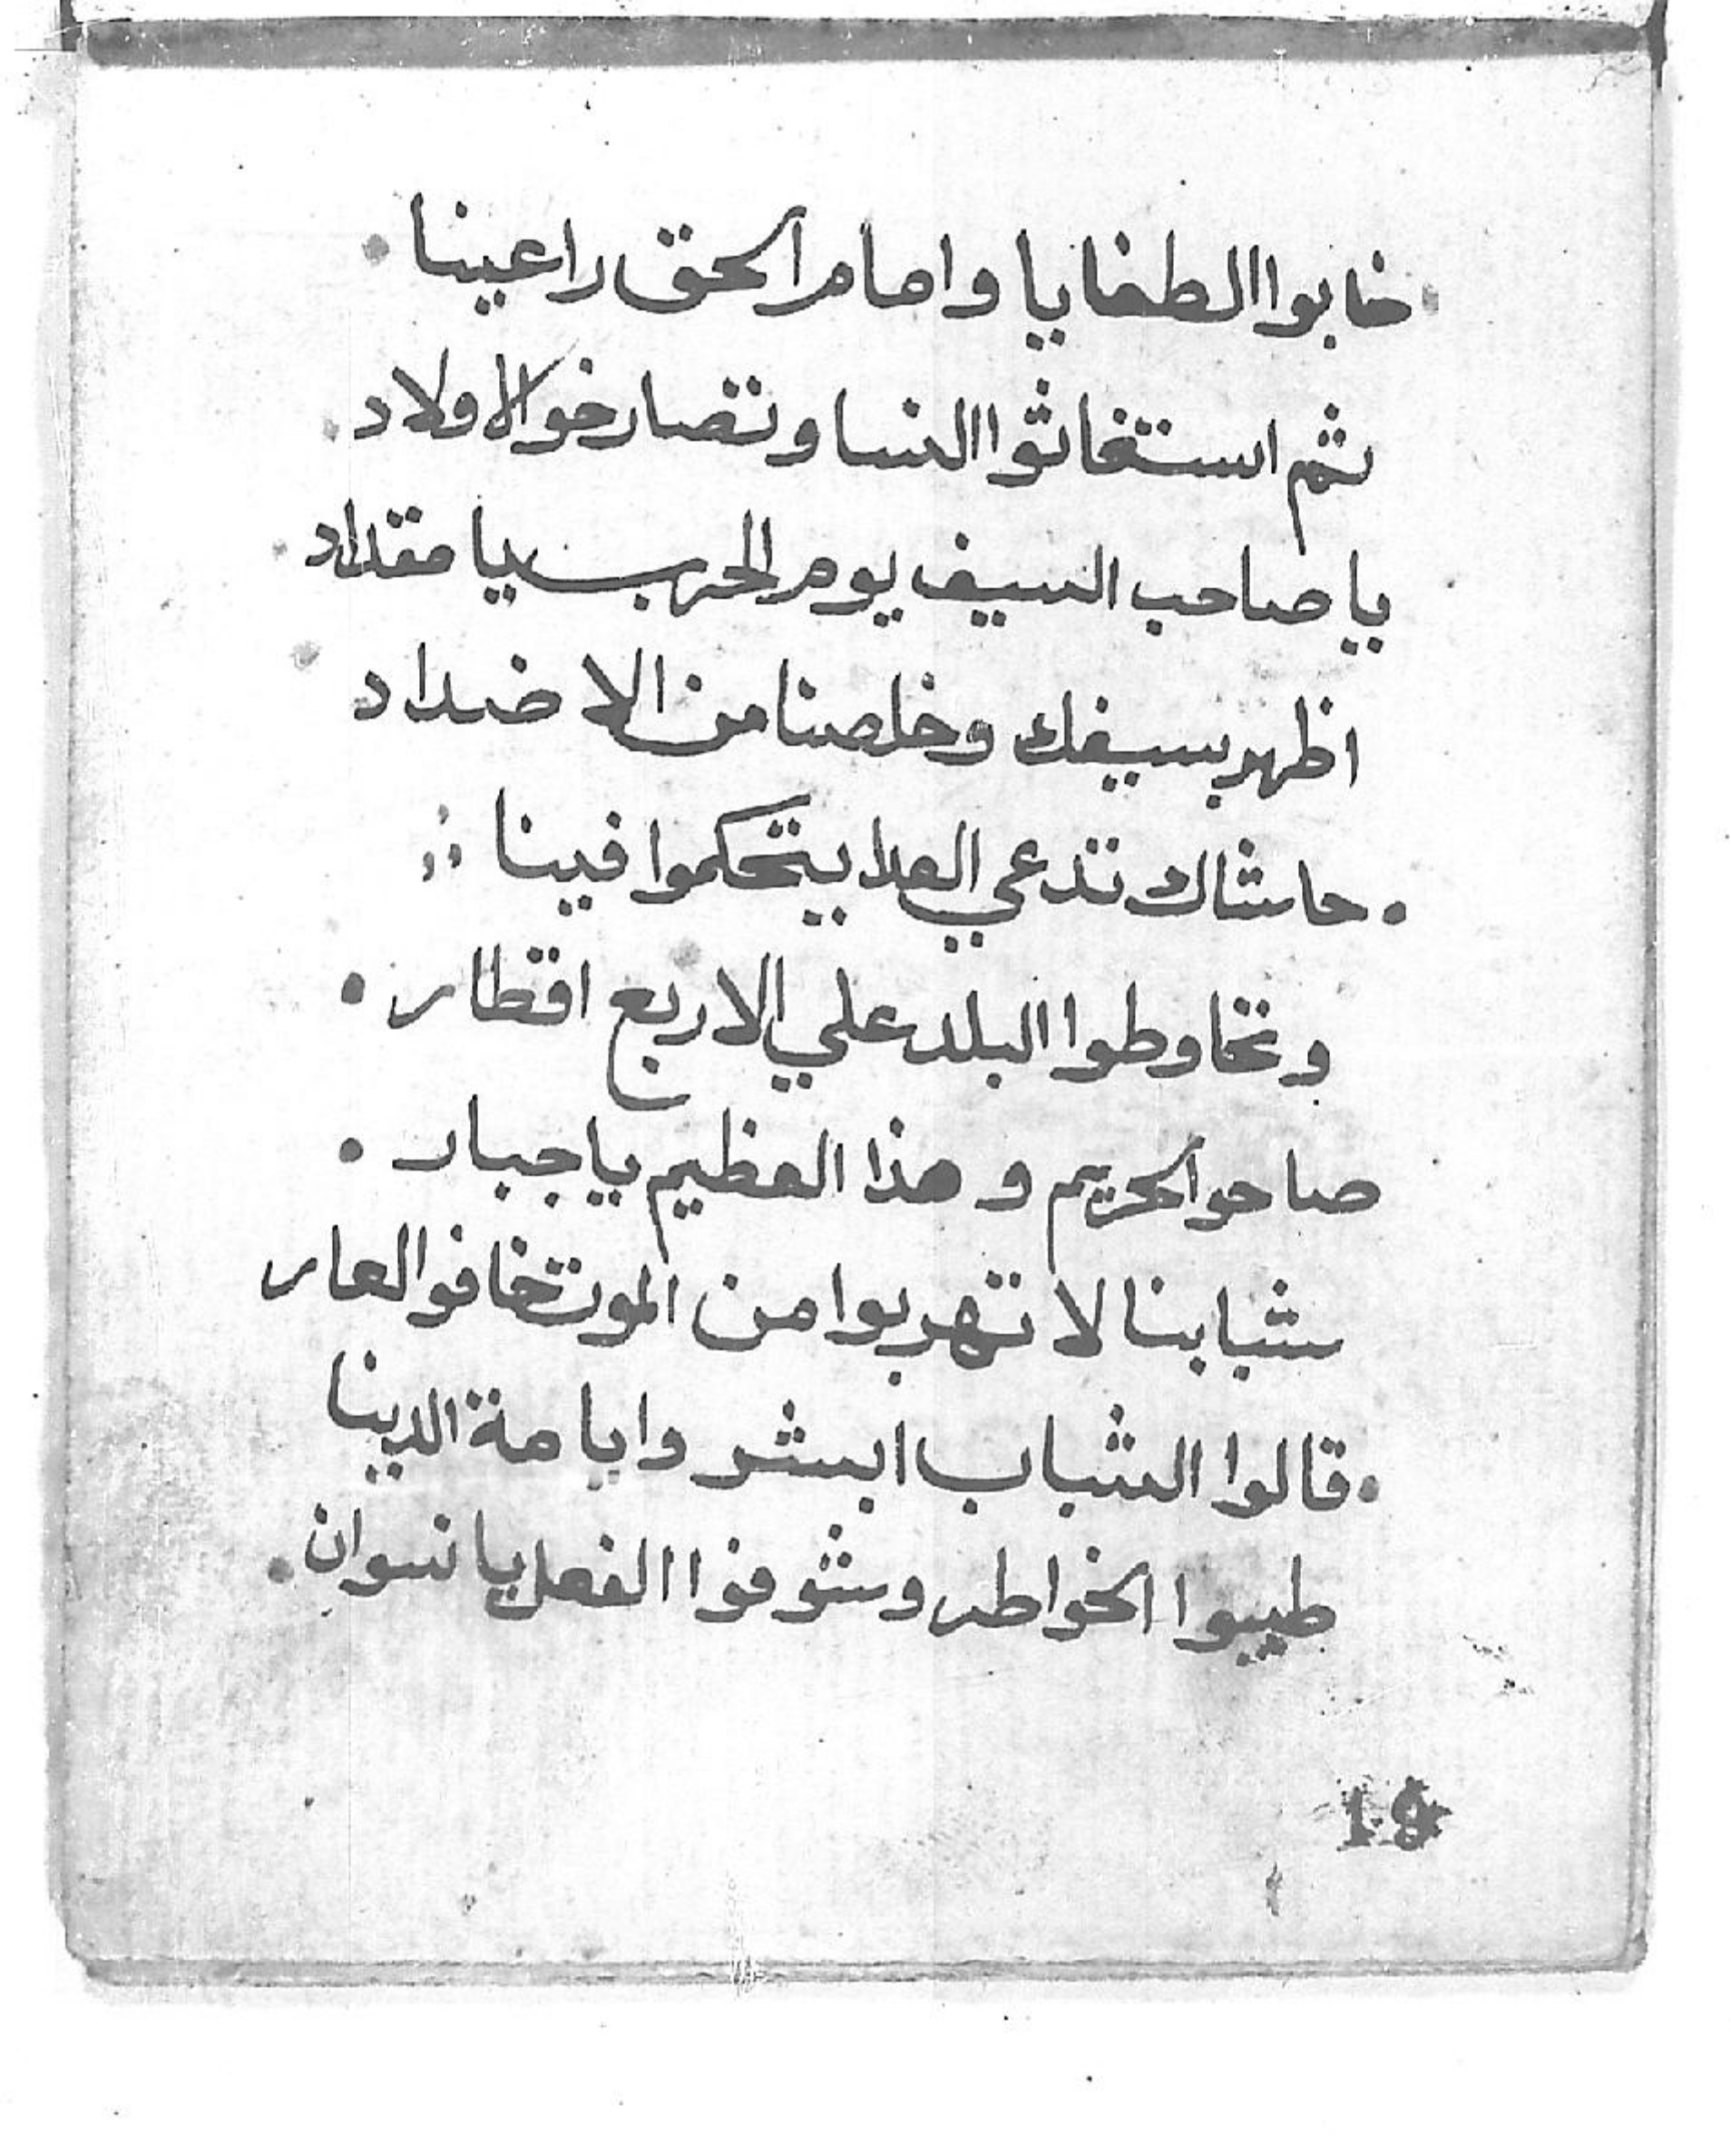 خابوا الطغايا وامام الحق راعينا
ثم استغاثوا النسا وتصارخوا الاولاد
يا صاحب السيف يوم الحرب يا مقداد
اظهر بسيفك وخلصنا من الاضداد
حاشاك تدعي العدا يتحكموا فينا
وتحاوطوا البلد علي الاربع اقطار
صاحوا الحريم و هذا العظيم يا جبار
شبابنا لا تهربوا من الموت تخافوا العار
قالوا الشباب ابشر وايا مة الدينا
طيبوا الخواطر وشوفوا الفعل يا نسوان
19